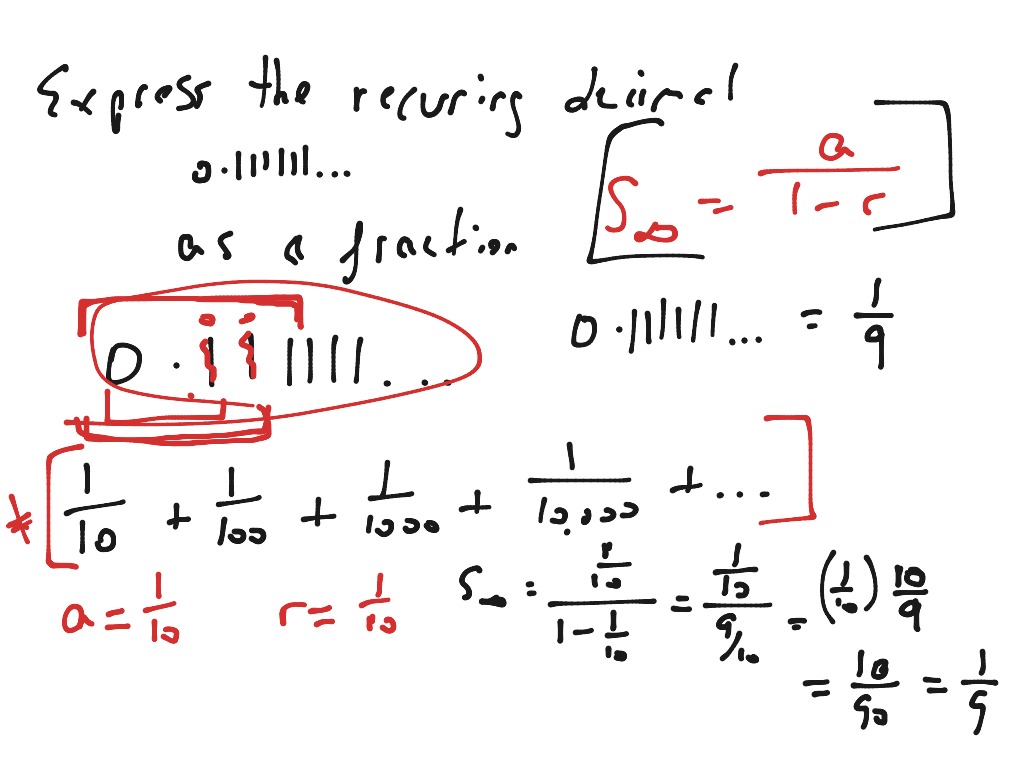 Express the recuring decimal
0.111111...
as a fraction
[S∞ = a/(1 - r)]
0.111111... = 1/9
0.111111....
* [1/10 + 1/100 + 1/1000 + 1/10,000 + ...]
a = 1/10 r = 1/10
S∞ = (1/10)/(1 - 1/10) = (1/10)/(9/10) = (1/10) 10/9
= 10/90 = 1/9